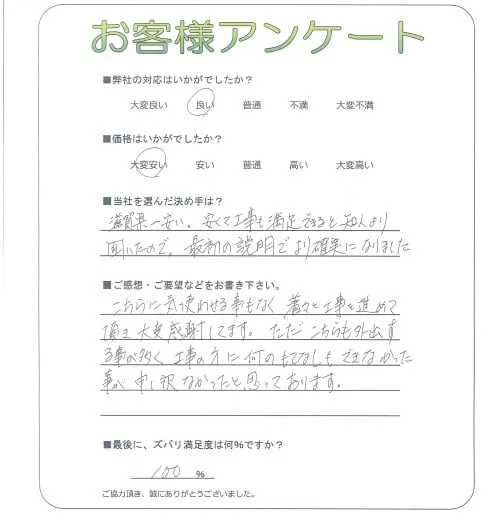 お客様アンケート
■弊社の対応はいかがでしたか？
大変良い 良い 普通 不満 大変不満
■価格はいかがでしたか？
大変安い 安い 普通 高い 大変高い
■当社を選んだ決め手は？
滋賀県一安い。安くて工事も満足できると知人より
聞いたので、最初の説明でより確実になりました
■ご感想・ご要望などをお書き下さい。
こちらに気使わせる事もなく着々と工事を進めて
頂き大変感謝してます。ただこちらも外出す
る事が多く工事の方に何のもてなしもできなかった
事が申し訳なかったと思っております。
■最後に、ズバリ満足度は何％ですか？
100 %
ご協力頂き、誠にありがとうございました。